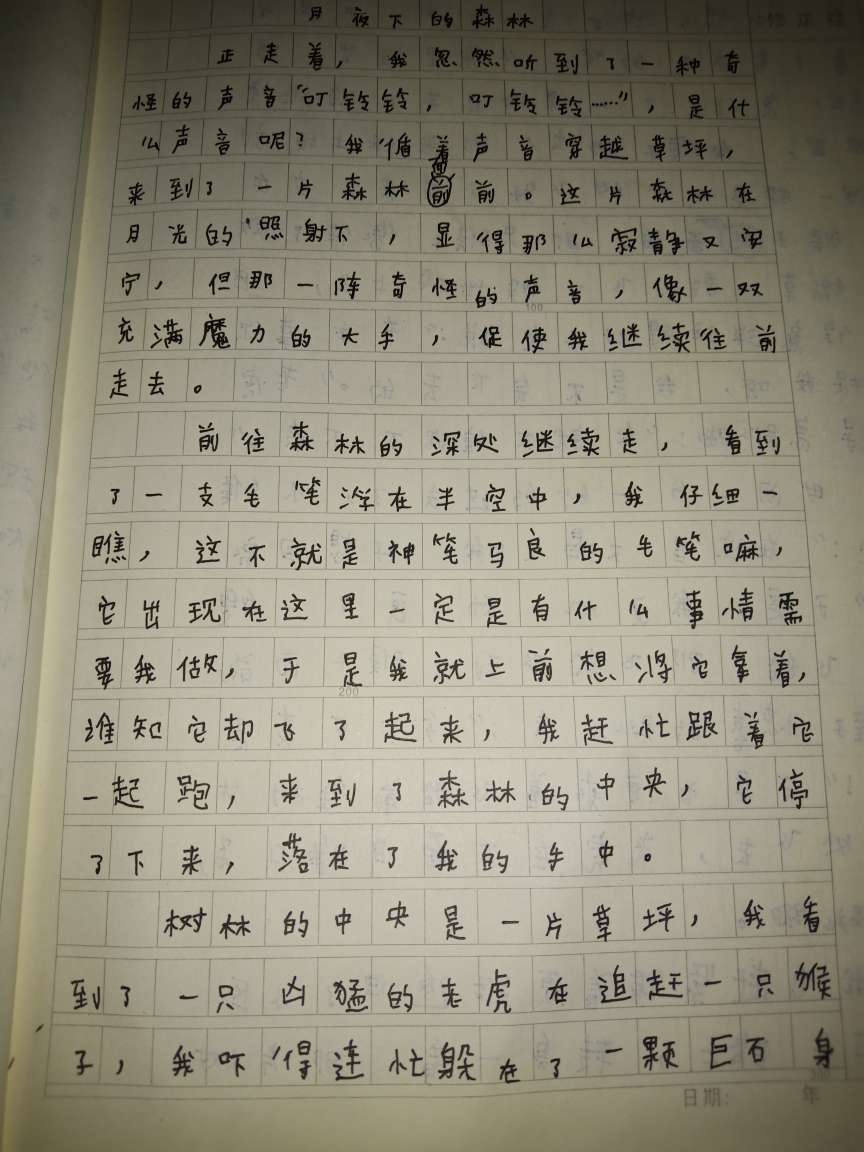 月夜下的森林
正走着，我忽然听到了一种奇
怪的声音“叮铃铃，叮铃铃……”，是什
么声音呢？我循着声音穿越草坪，
来到了一片森林前面前。这片森林在
月光的照射下，显得那么寂静又安
宁，但那一阵奇怪的声音，像一双
100
充满魔力的大手，促使我继续往前
走去。
前往森林的深处继续走，看到
了一支毛笔浮在半空中，我仔细一
瞧，这不就是神笔马良的毛笔嘛，
它出现在这里一定是有什么事情需
要我做，于是我就上前想将它拿着，
200
谁知它却飞了起来，我赶忙跟着它
一起跑，来到了森林的中央，它停
了下来，落在了我的手中。
树林的中央是一片草坪，我看
到了一只凶猛的老虎在追赶一只猴
子，我吓得连忙躲在了一颗巨石身
日期： 年